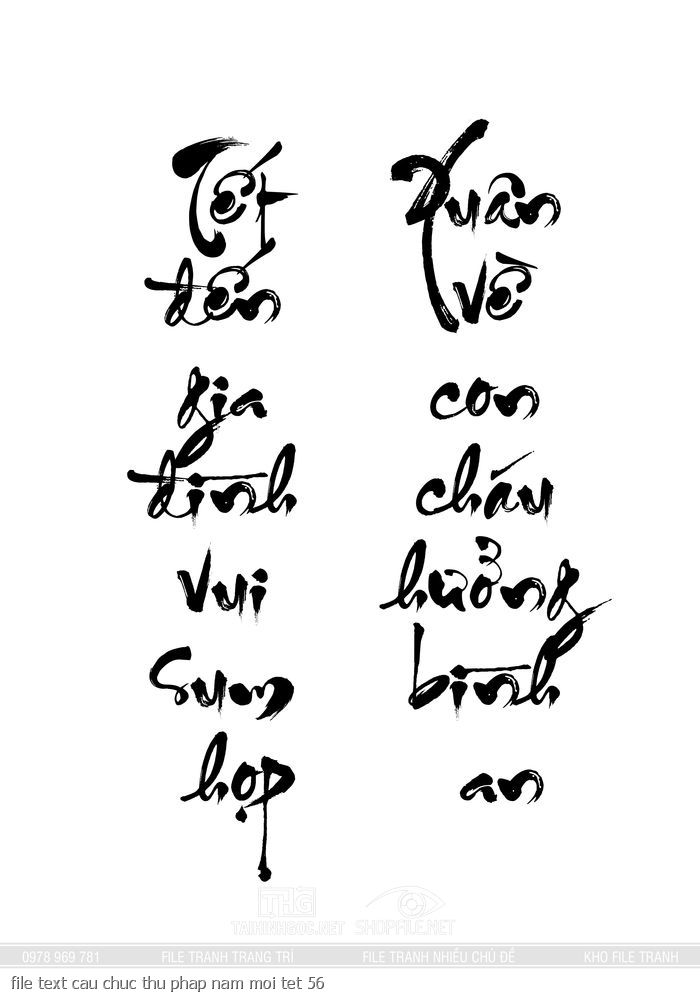 Tết
đến
gia
đình
vui
sum
họp
Xuân
về
con
cháu
hưởng
bình
an
THG
TAIHINHGOC.NET SHOPFILE.NET
0978 969 781 FILE TRANH TRANG TRÍ FILE TRANH NHIỀU CHỦ ĐỀ KHO FILE TRANH
file text cau chuc thu phap nam moi tet 56